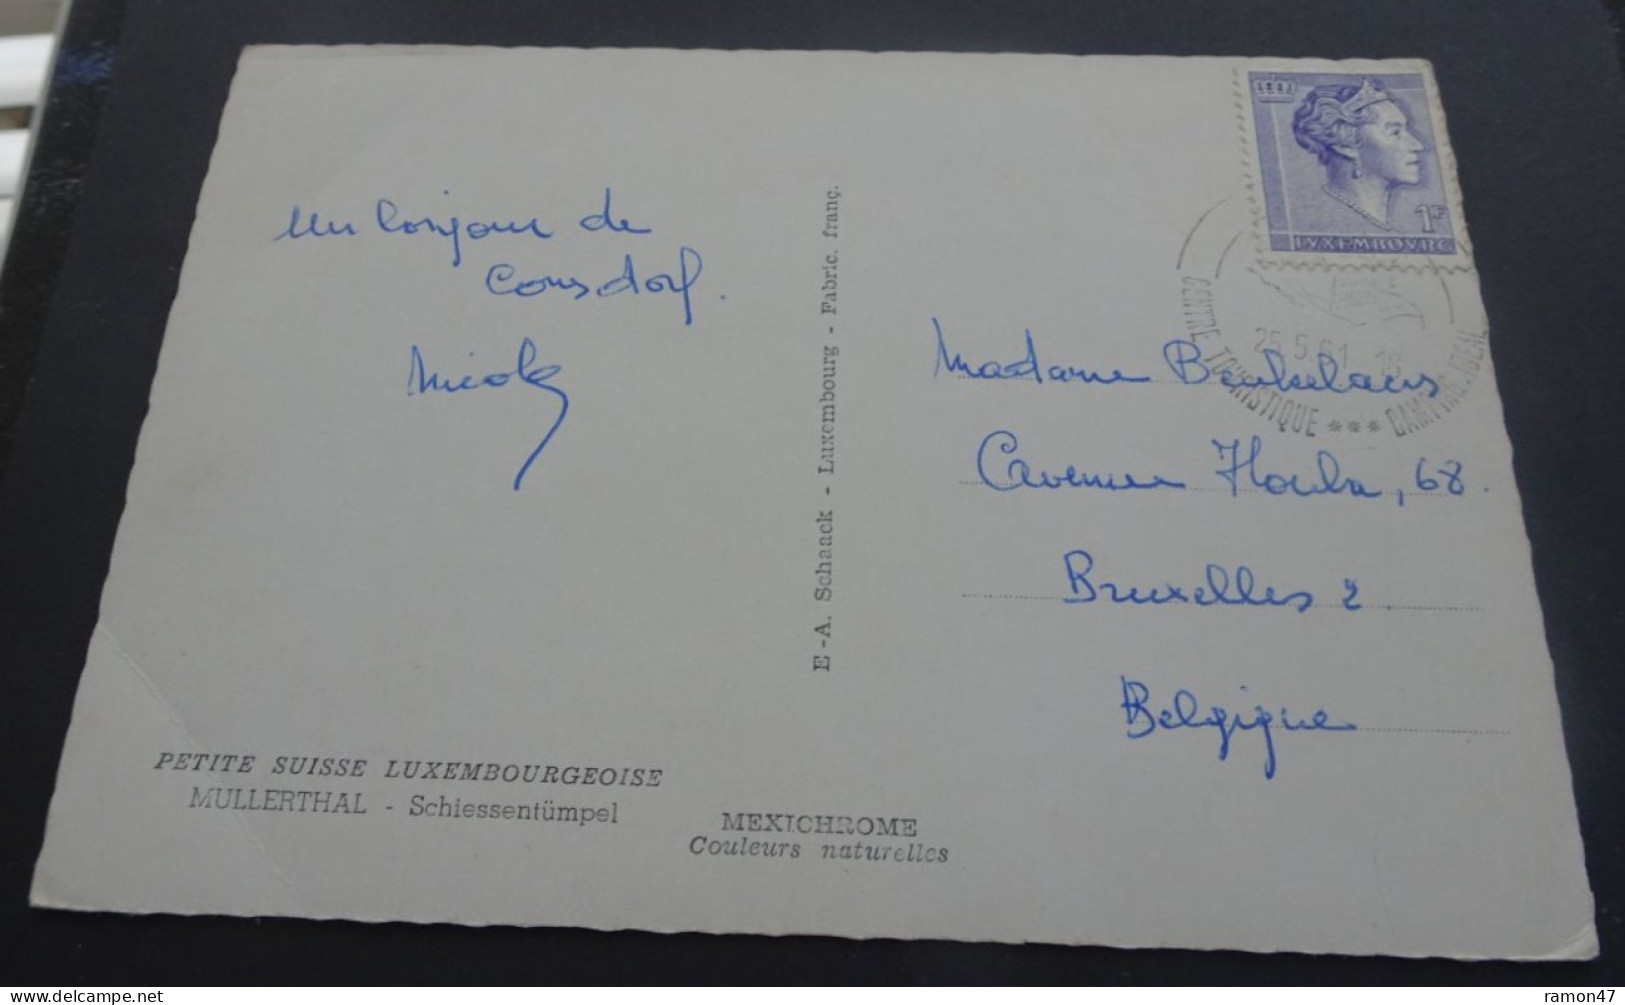 Un bonjour de
Consdorf.
Nicole
E.-A. Schaack - Luxembourg - Fabric. franç.
PETITE SUISSE LUXEMBOURGEOISE
MULLERTHAL - Schiessentümpel
MEXICHROME
Couleurs naturelles
1F
LUXEMBOURG
25.5.61 - 18
CENTRE TOURISTIQUE *** CAMPING IDEAL
Madame
Avenue 68.
Bruxelles 2
Belgique
delcampe.net
ramon47